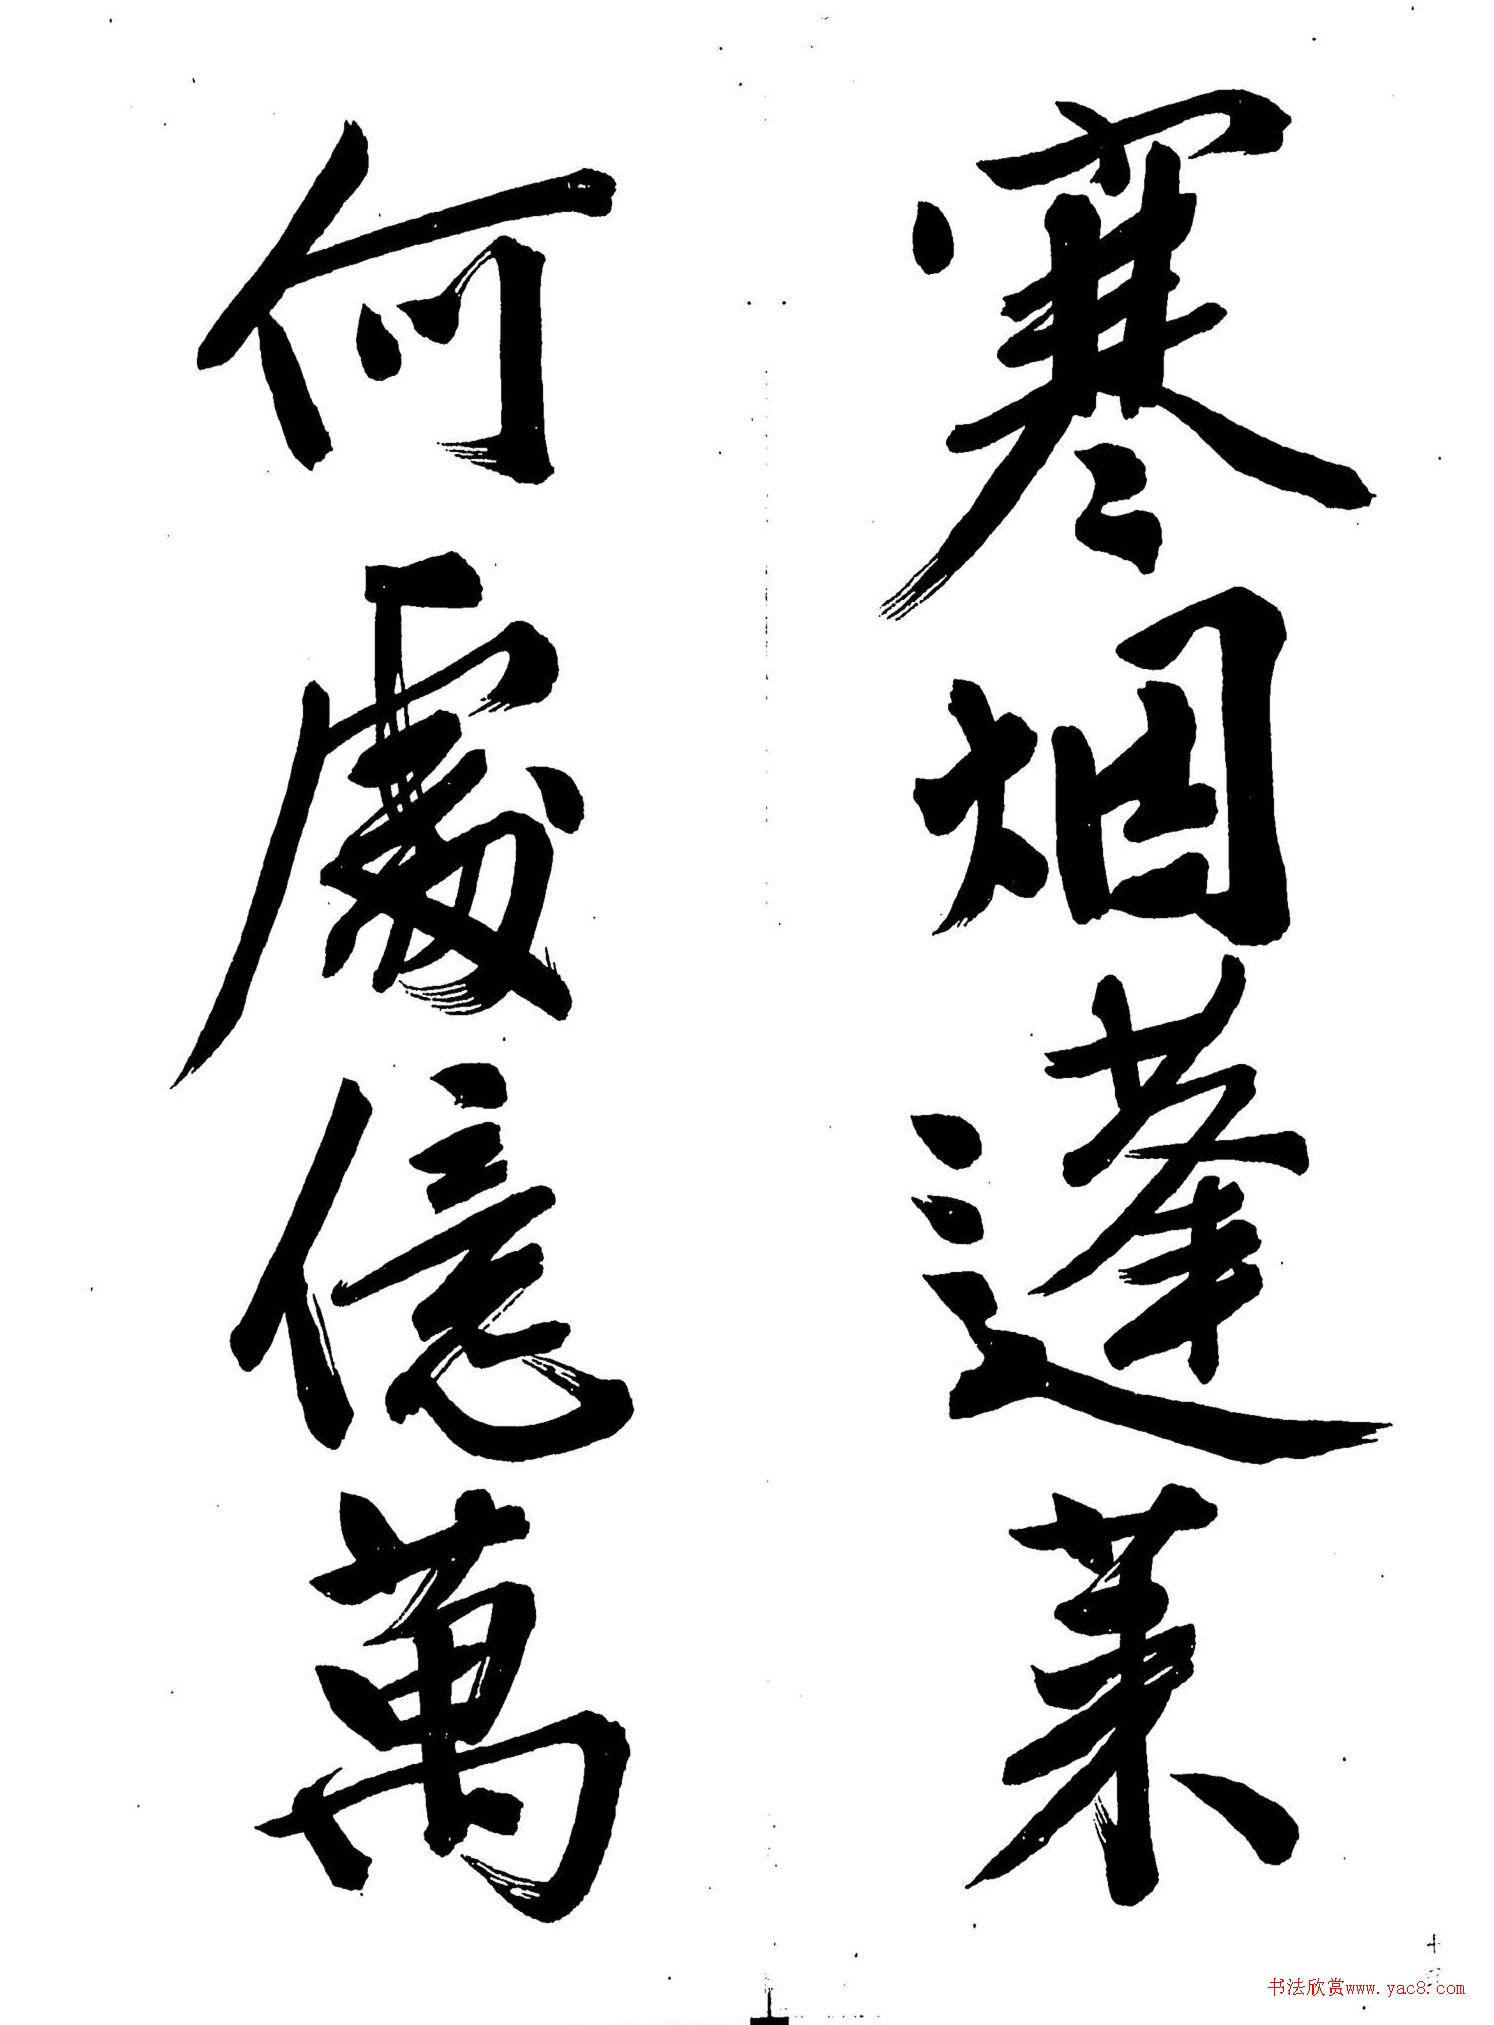 寒烟蓬莱
何處億萬
十
书法欣赏www.yac8.com